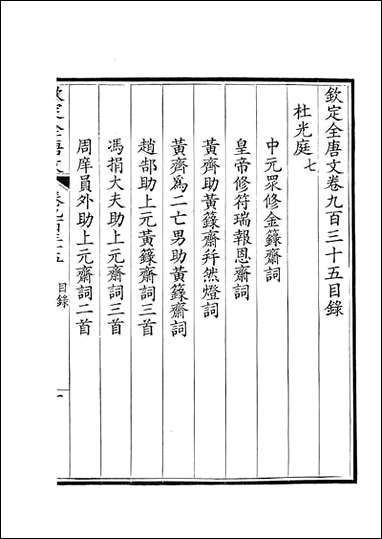 欽定全唐文卷九百三十五目錄
杜光庭七
中元眾修金籙齋詞
皇帝修符瑞報恩齋詞
黃齊助黃籙齋幷然燈詞
黃齊為二亡男助黃籙齋詞
趙郜助上元黃籙齋詞三首
馮捐大夫助上元齋詞三首
周庠員外助上元齋詞二首
欽定全唐文
卷九百三十五
目錄
一